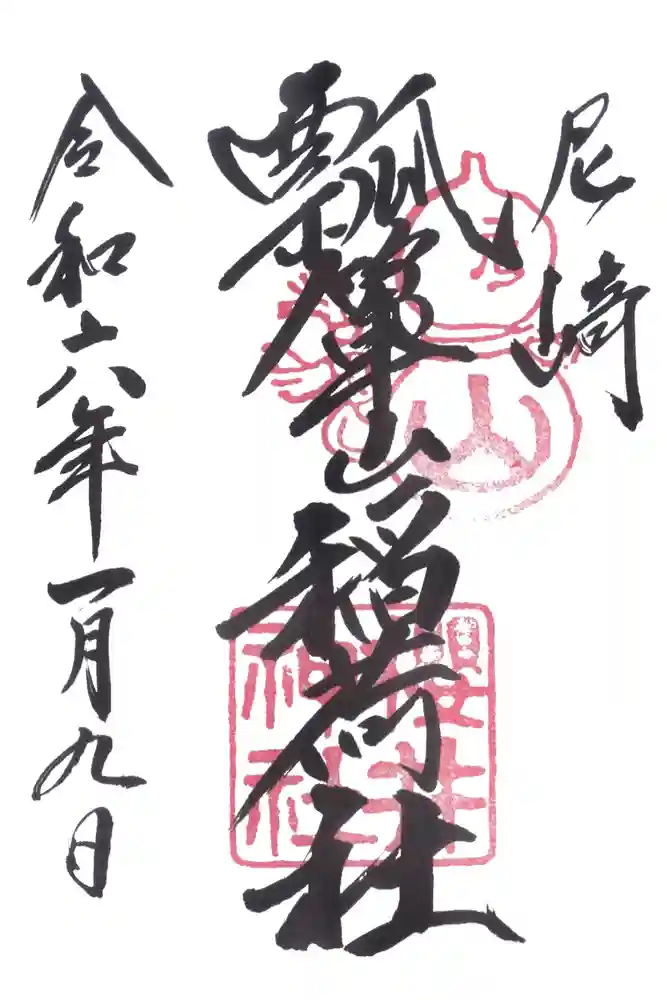 尼崎
瓢箪山稲荷社
櫻井
神社
令和六年一月九日